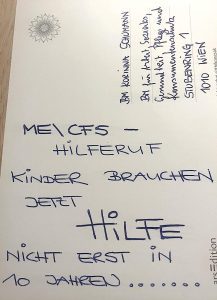 ME\CFS –
HILFERUF
KINDER BRAUCHEN
JETZT
HILFE
NICHT ERST IN
10 JAHREN.......
BM KORINNA SCHUMANN
BM für Arbeit, Soziales,
Gesundheit, Pflege und
Konsumentenschutz
STUBENRING 1
1010 WIEN
arsEdition